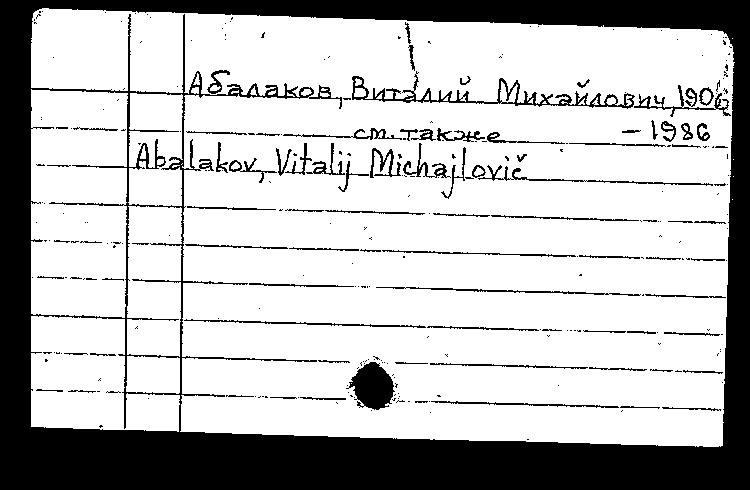 Абалаков, Виталий Михайлович, 1906
см. также – 1986
Abalakov, Vitalij Michajlovič